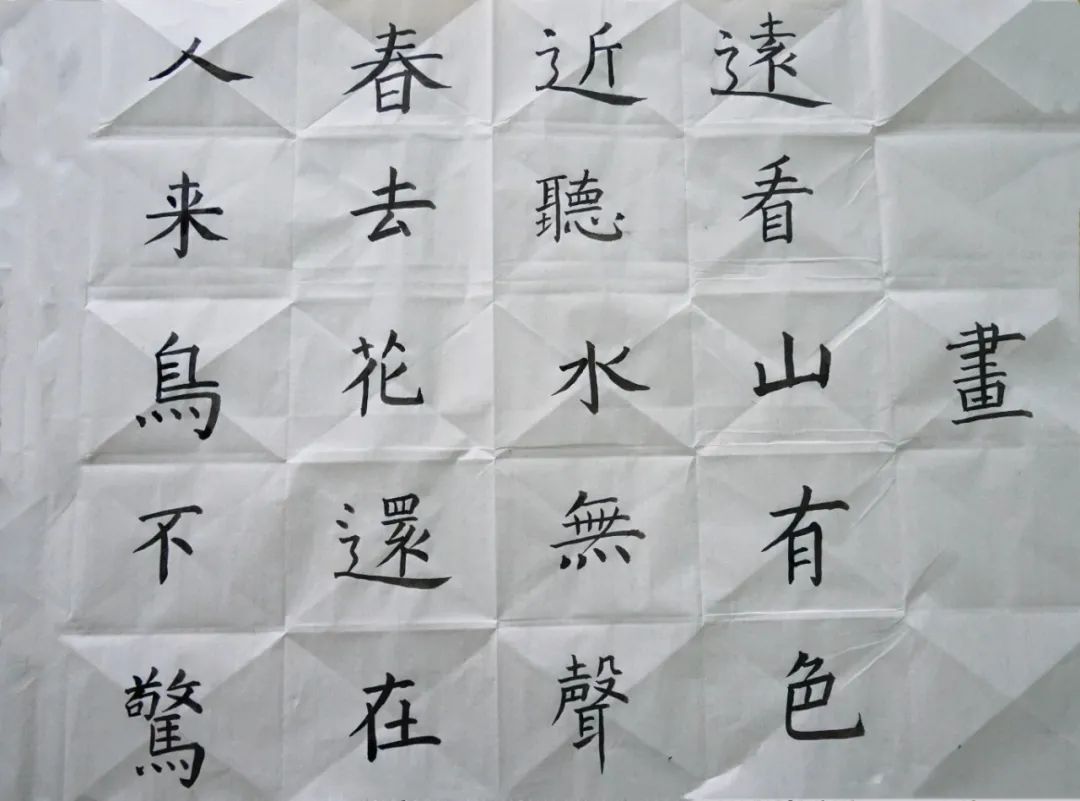 畫
遠看山有色
近聽水無聲
春去花還在
人来鳥不驚